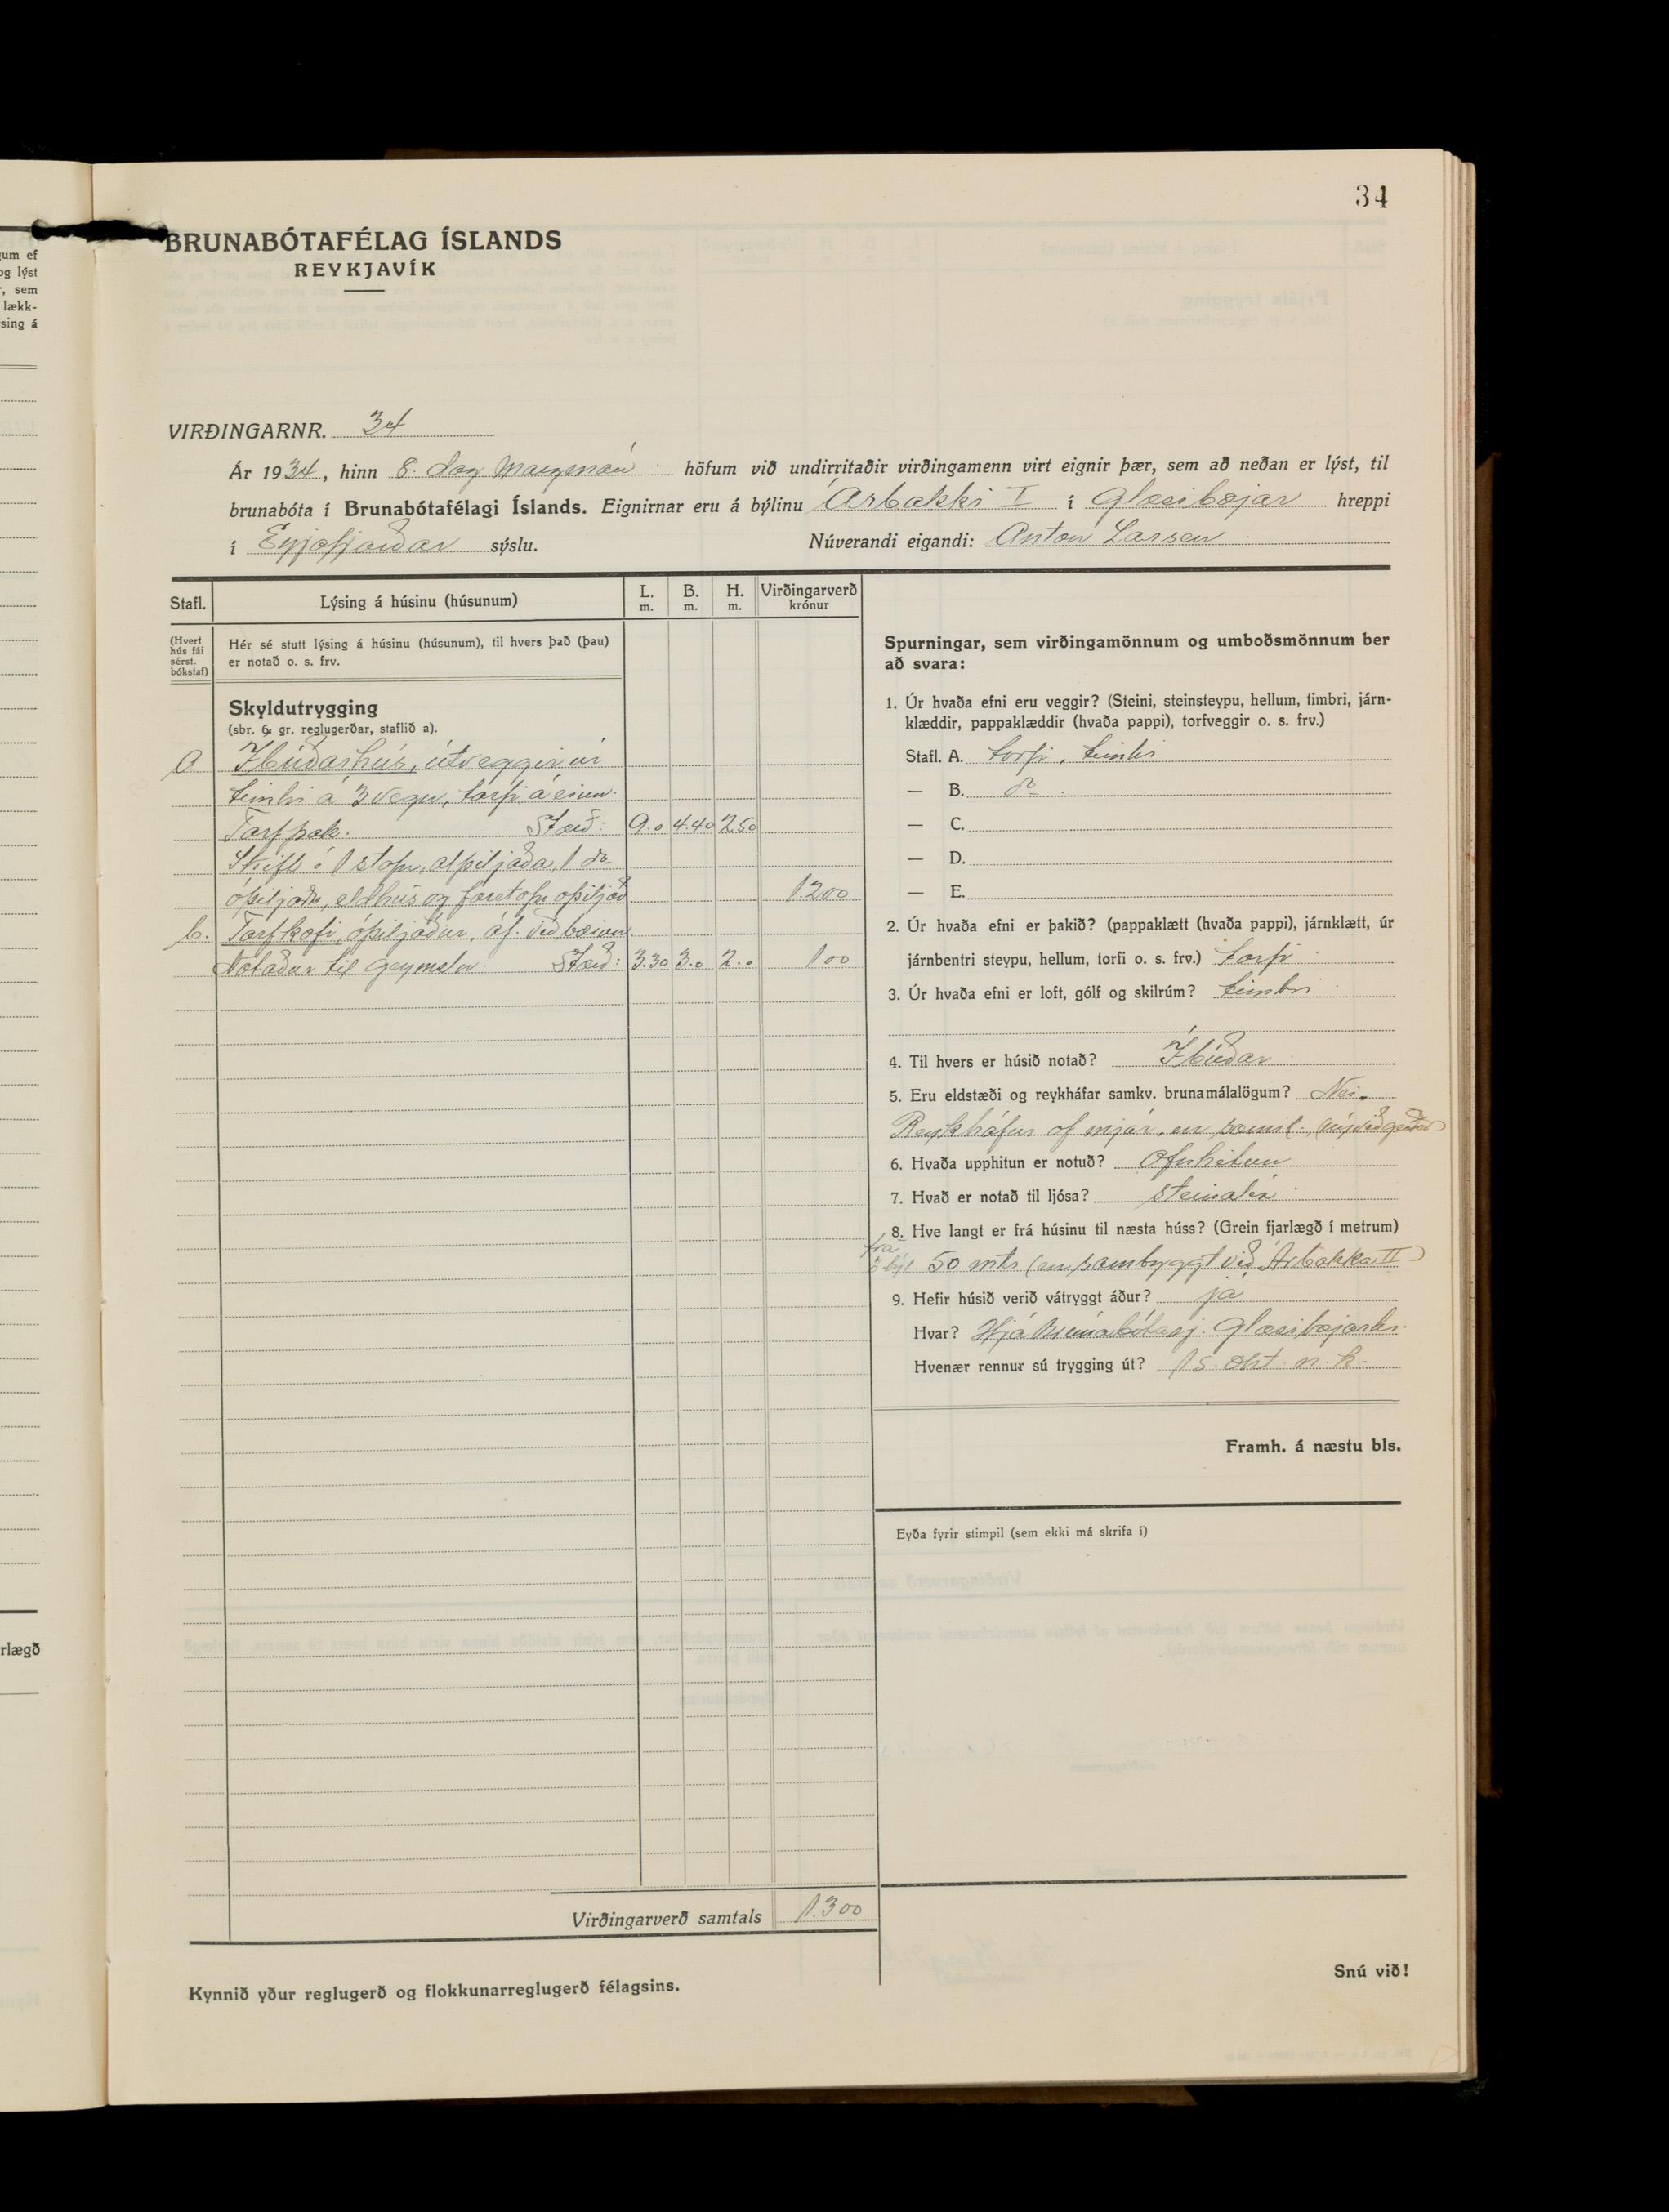 34
BRUNABÓTAFÉLAG ÍSLANDS
REYKJAVÍK
VIRÐINGARNR. 34
Ár 1934, hinn 8. dag höfum við undirritaðir virðingamenn virt eignir þær, sem að neðan er lýst, til
brunabóta í Brunabótafélagi Íslands. Eignirnar eru á býlinu Árbakki I í Glæsibæjar hreppi
í Eyjafjarðar sýslu. Núverandi eigandi: Anton Larsen
Stafl. Lýsing á húsinu (húsunum) L. m. B. m. H. m. Virðingarverð krónur
(Hvert hús fái sérst. bókstaf)
Hér sé stutt lýsing á húsinu (húsunum), til hvers það (þau)
er notað o. s. frv.
Skyldutrygging
(sbr. 6. gr. reglugerðar, staflið a).
a. Íbúðarhús, útveggir úr
timbri á 3 vegu, torfi á einn.
Torfþak. Stærð: 9.0 4.40 2.50
Skift í 1 stofu, alþiljaða, 1 do
óþiljaða, eldhús og forstofu óþiljað 1.200
b. Torfkofi, óþiljaður, áf. við bæinn
Notaður til geymslu. Stærð: 3.30 3.0 2.0 100
Virðingarverð samtals 1.300
Kynnið yður reglugerð og flokkunarreglugerð félagsins.
Spurningar, sem virðingamönnum og umboðsmönnum ber
að svara:
1. Úr hvaða efni eru veggir? (Steini, steinsteypu, hellum, timbri, járn-
klæddir, pappaklæddir (hvaða pappi), torfveggir o. s. frv.)
Stafl. A. torfi, timbri
— B. do
— C.
— D.
— E.
2. Úr hvaða efni er þakið? (pappaklætt (hvaða pappi), járnklætt, úr
járnbentri steypu, hellum, torfi o. s. frv.) torfi
3. Úr hvaða efni er loft, gólf og skilrúm? timbri
4. Til hvers er húsið notað? Íbúðar
5. Eru eldstæði og reykháfar samkv. brunamálalögum? Nei.
Reykháfur of mjór, en sæmil.
6. Hvaða upphitun er notuð? Ofnhitun
7. Hvað er notað til ljósa? steinolía
8. Hve langt er frá húsinu til næsta húss? (Grein fjarlægð í metrum)
frá
50 mtr (en sambyggt við Árbakka II)
9. Hefir húsið verið vátryggt áður? já
Hvar? Hjá Brunabótasj. Glæsibæjarhr.
Hvenær rennur sú trygging út? 15. okt. n.k.
Framh. á næstu bls.
Eyða fyrir stimpil (sem ekki má skrifa í)
Snú við!